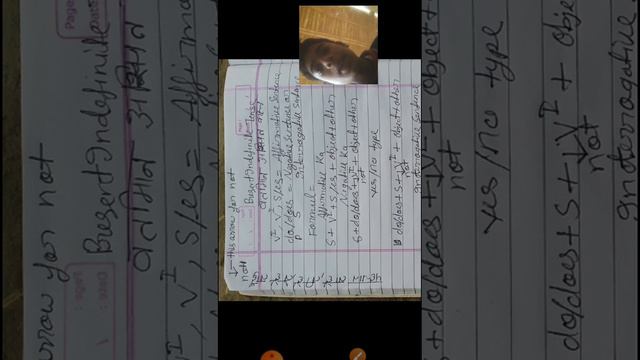 ↓ this arrow for not
not
Present Indefinite tense
वर्तमान अनिश्चित काल
V I, V I, s/es = Affirmative Sentence
do/does = Negative Sentence an
P S interrogative Sentence
Formula =
Affirmative Ka
S + V I + s/es + object + other
Negative Ka
S + do/does + ↓ V I + object + other
not
yes/no type
do/does + S + ↓ V I + object + other
not
interrogative Sentence